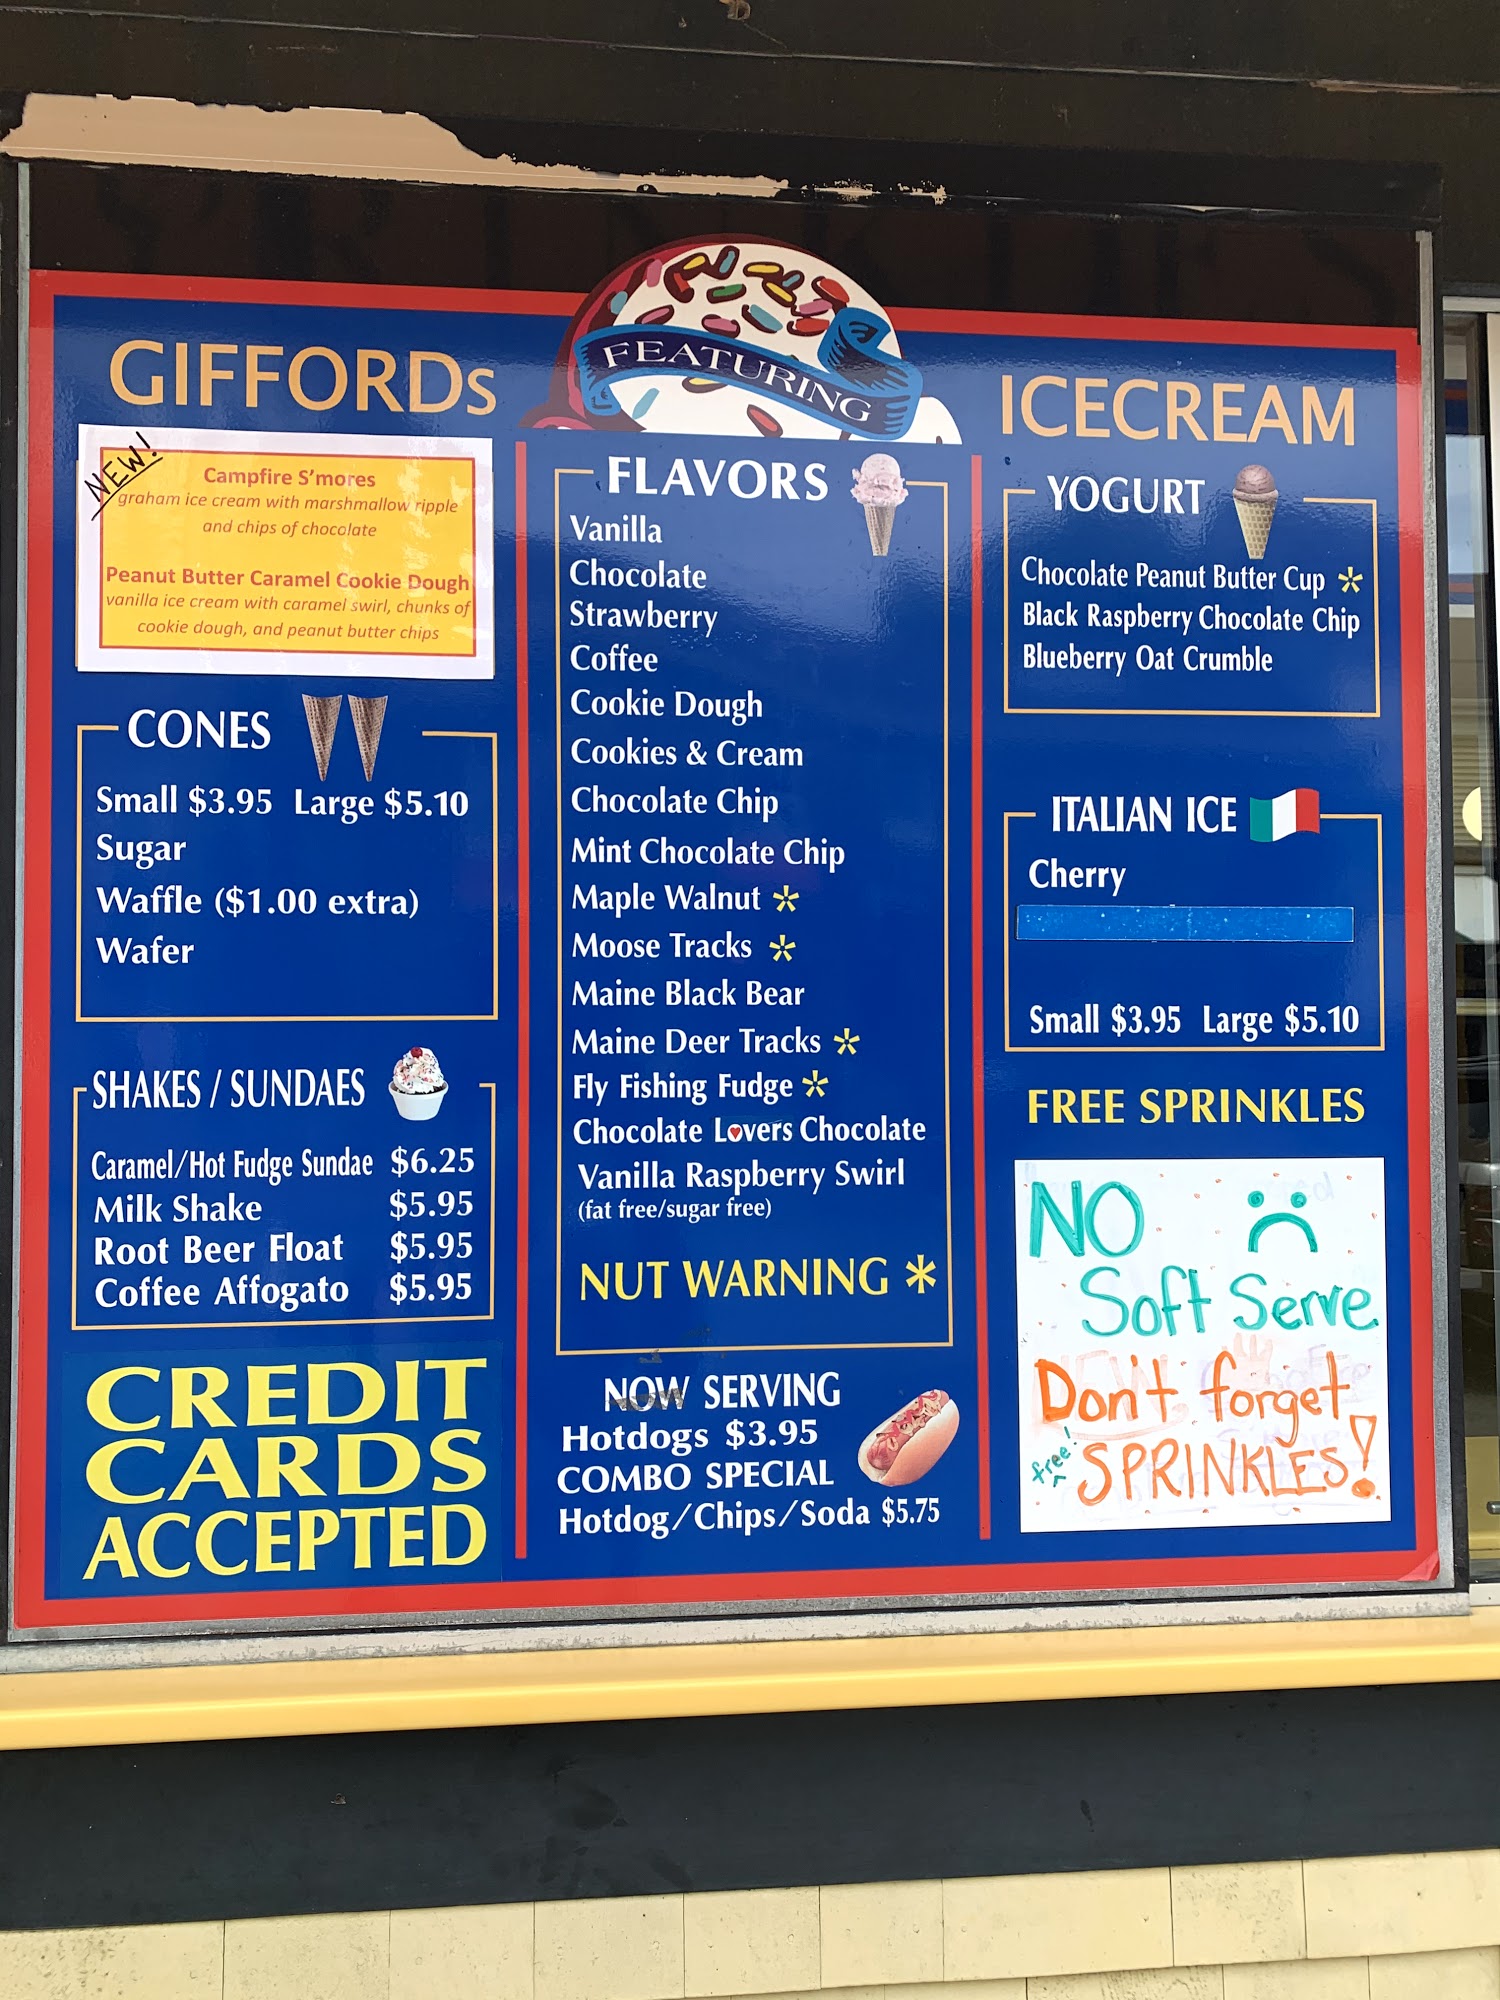 FEATURING
GIFFORDs
ICECREAM
NEW!
Campfire S'mores
graham ice cream with marshmallow ripple
and chips of chocolate
Peanut Butter Caramel Cookie Dough
vanilla ice cream with caramel swirl, chunks of
cookie dough, and peanut butter chips
CONES
Small $3.95 Large $5.10
Sugar
Waffle ($1.00 extra)
Wafer
SHAKES / SUNDAES
Caramel/Hot Fudge Sundae $6.25
Milk Shake $5.95
Root Beer Float $5.95
Coffee Affogato $5.95
CREDIT
CARDS
ACCEPTED
FLAVORS
Vanilla
Chocolate
Strawberry
Coffee
Cookie Dough
Cookies & Cream
Chocolate Chip
Mint Chocolate Chip
Maple Walnut *
Moose Tracks *
Maine Black Bear
Maine Deer Tracks *
Fly Fishing Fudge *
Chocolate L♥vers Chocolate
Vanilla Raspberry Swirl
(fat free/sugar free)
NUT WARNING *
NOW SERVING
Hotdogs $3.95
COMBO SPECIAL
Hotdog/Chips/Soda $5.75
YOGURT
Chocolate Peanut Butter Cup *
Black Raspberry Chocolate Chip
Blueberry Oat Crumble
ITALIAN ICE
Cherry
Small $3.95 Large $5.10
FREE SPRINKLES
NO
Soft Serve
Don't forget
free!
SPRINKLES!